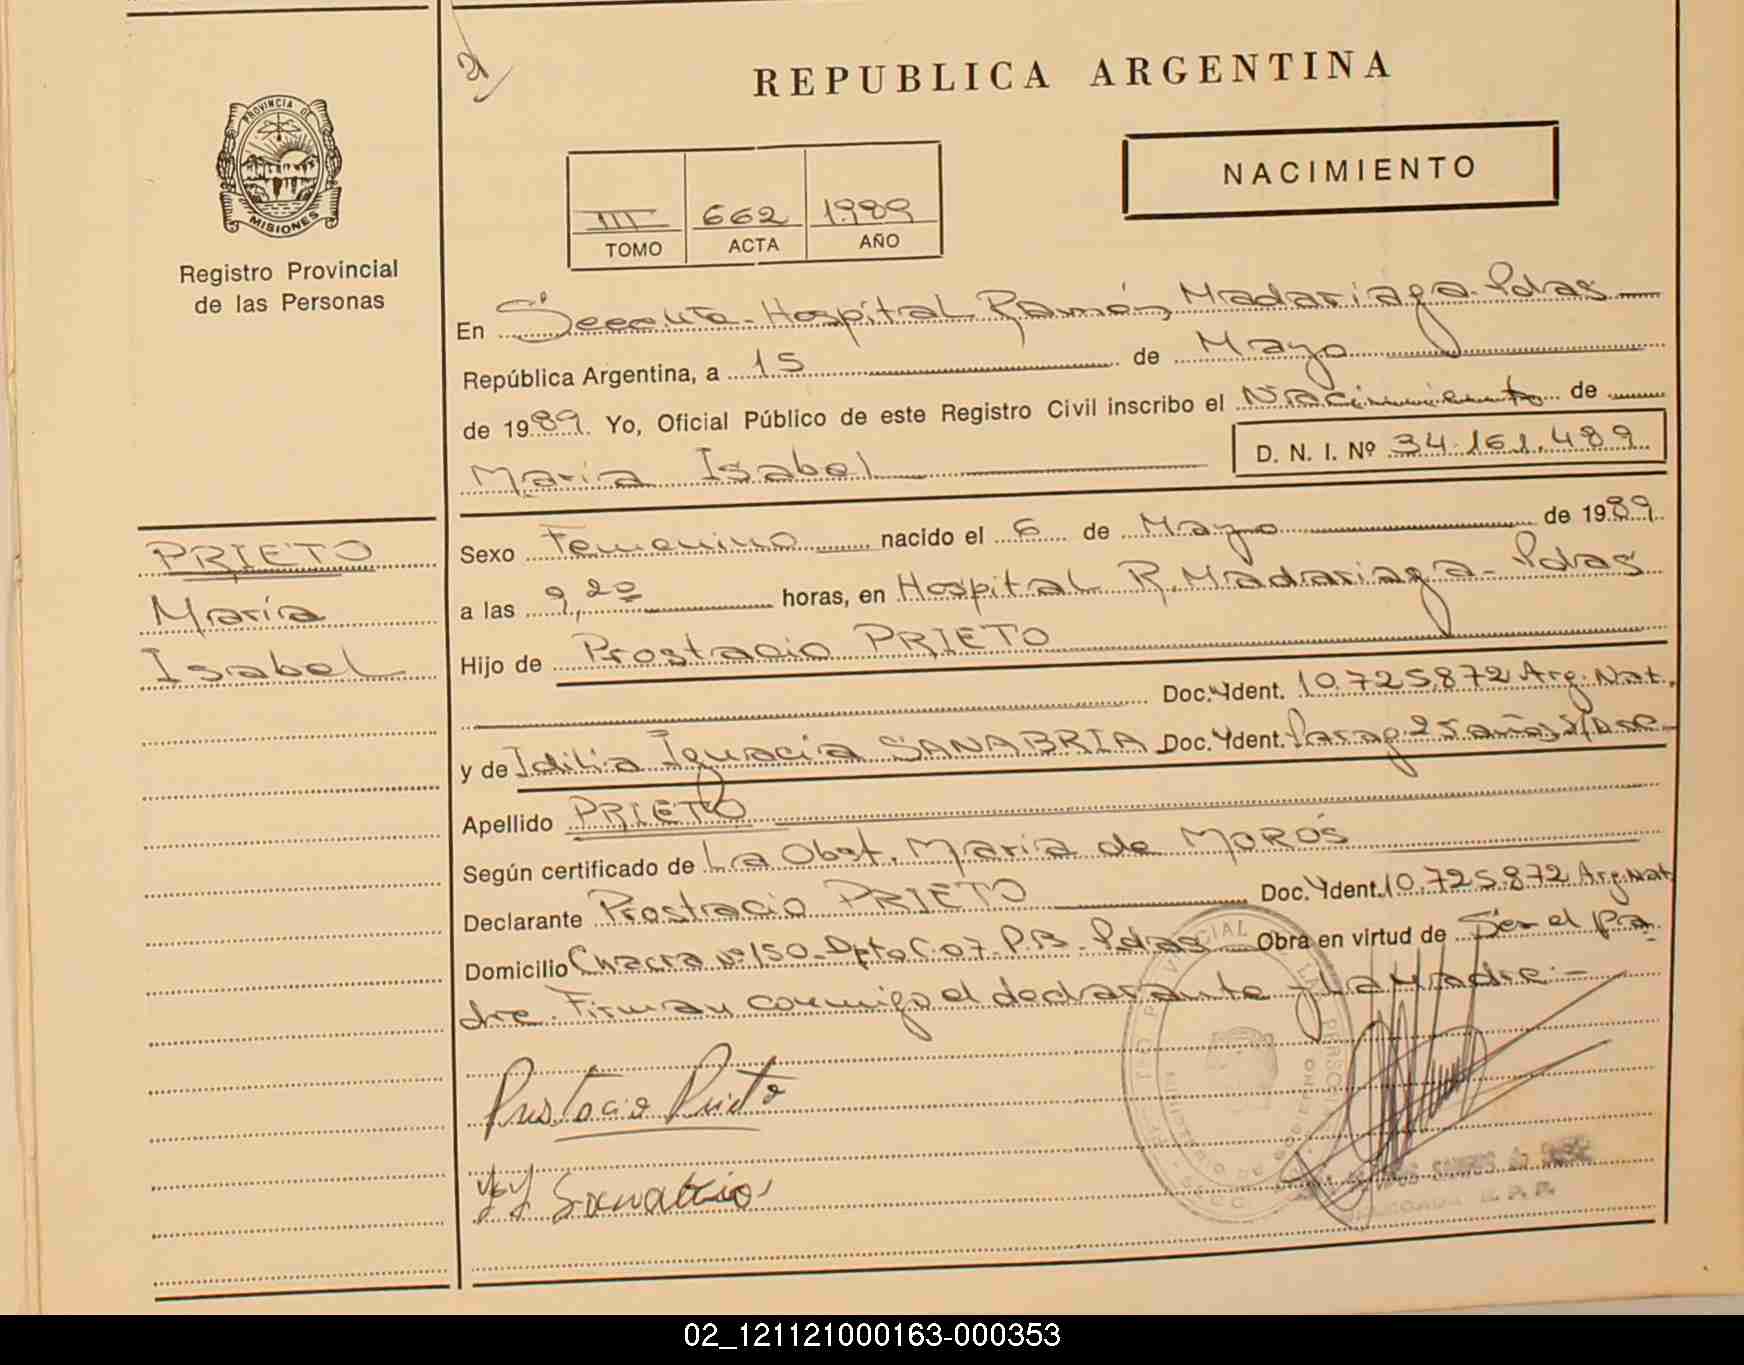 REPUBLICA ARGENTINA
PROVINCIA DE MISIONES
Registro Provincial
de las Personas
NACIMIENTO
III 662 1989
TOMO ACTA AÑO
En Seccuta - Hospital Ramón Madariaga - Pdas
República Argentina, a 15 de Mayo
de 1989. Yo, Oficial Público de este Registro Civil inscribo el Nacimiento de
María Isabel D. N. I. Nº 34.161.489
PRIETO
María
Isabel
Sexo Femenino nacido el 6 de Mayo de 1989
a las 9,20 horas, en Hospital R. Madariaga - Pdas
Hijo de Prostacio PRIETO
Doc. Ydent. 10.725.872 Arg. Nat.
y de Idilia Ignacia SANABRIA Doc. Ydent. Parag. 25 años S/Doc
Apellido PRIETO
Según certificado de La Obst. María de MOROS
Declarante Prostracio PRIETO Doc. Ydent. 10.725.872 Arg. Nat
Domicilio Chacra Nº 150 - Dpto C. 07 - P.B. - Pdas Obra en virtud de Ser el pa
dre. Firman conmigo el declarante y La Madre. -
Prostacio Prieto
Sanabria
02_121121000163-000353